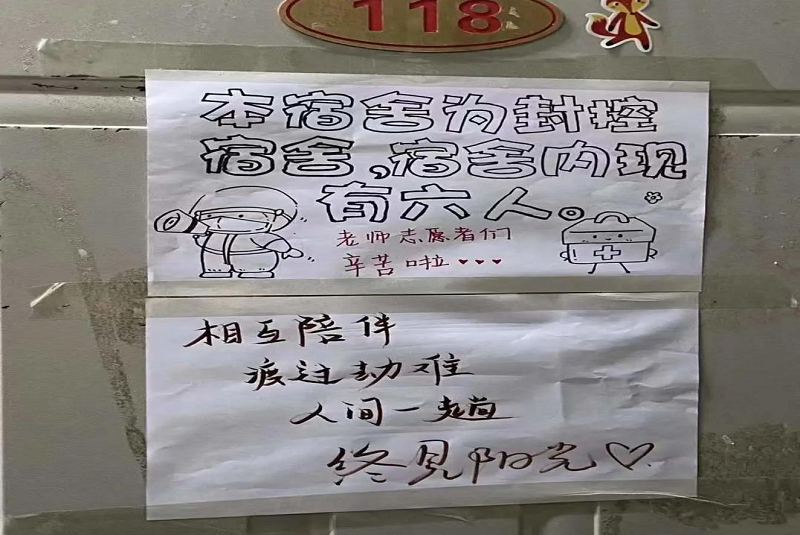 118
本宿舍为封控
宿舍,宿舍内现
有六人。
老师志愿者们
辛苦啦
相互陪伴
渡过劫难
人间一趟
终见阳光